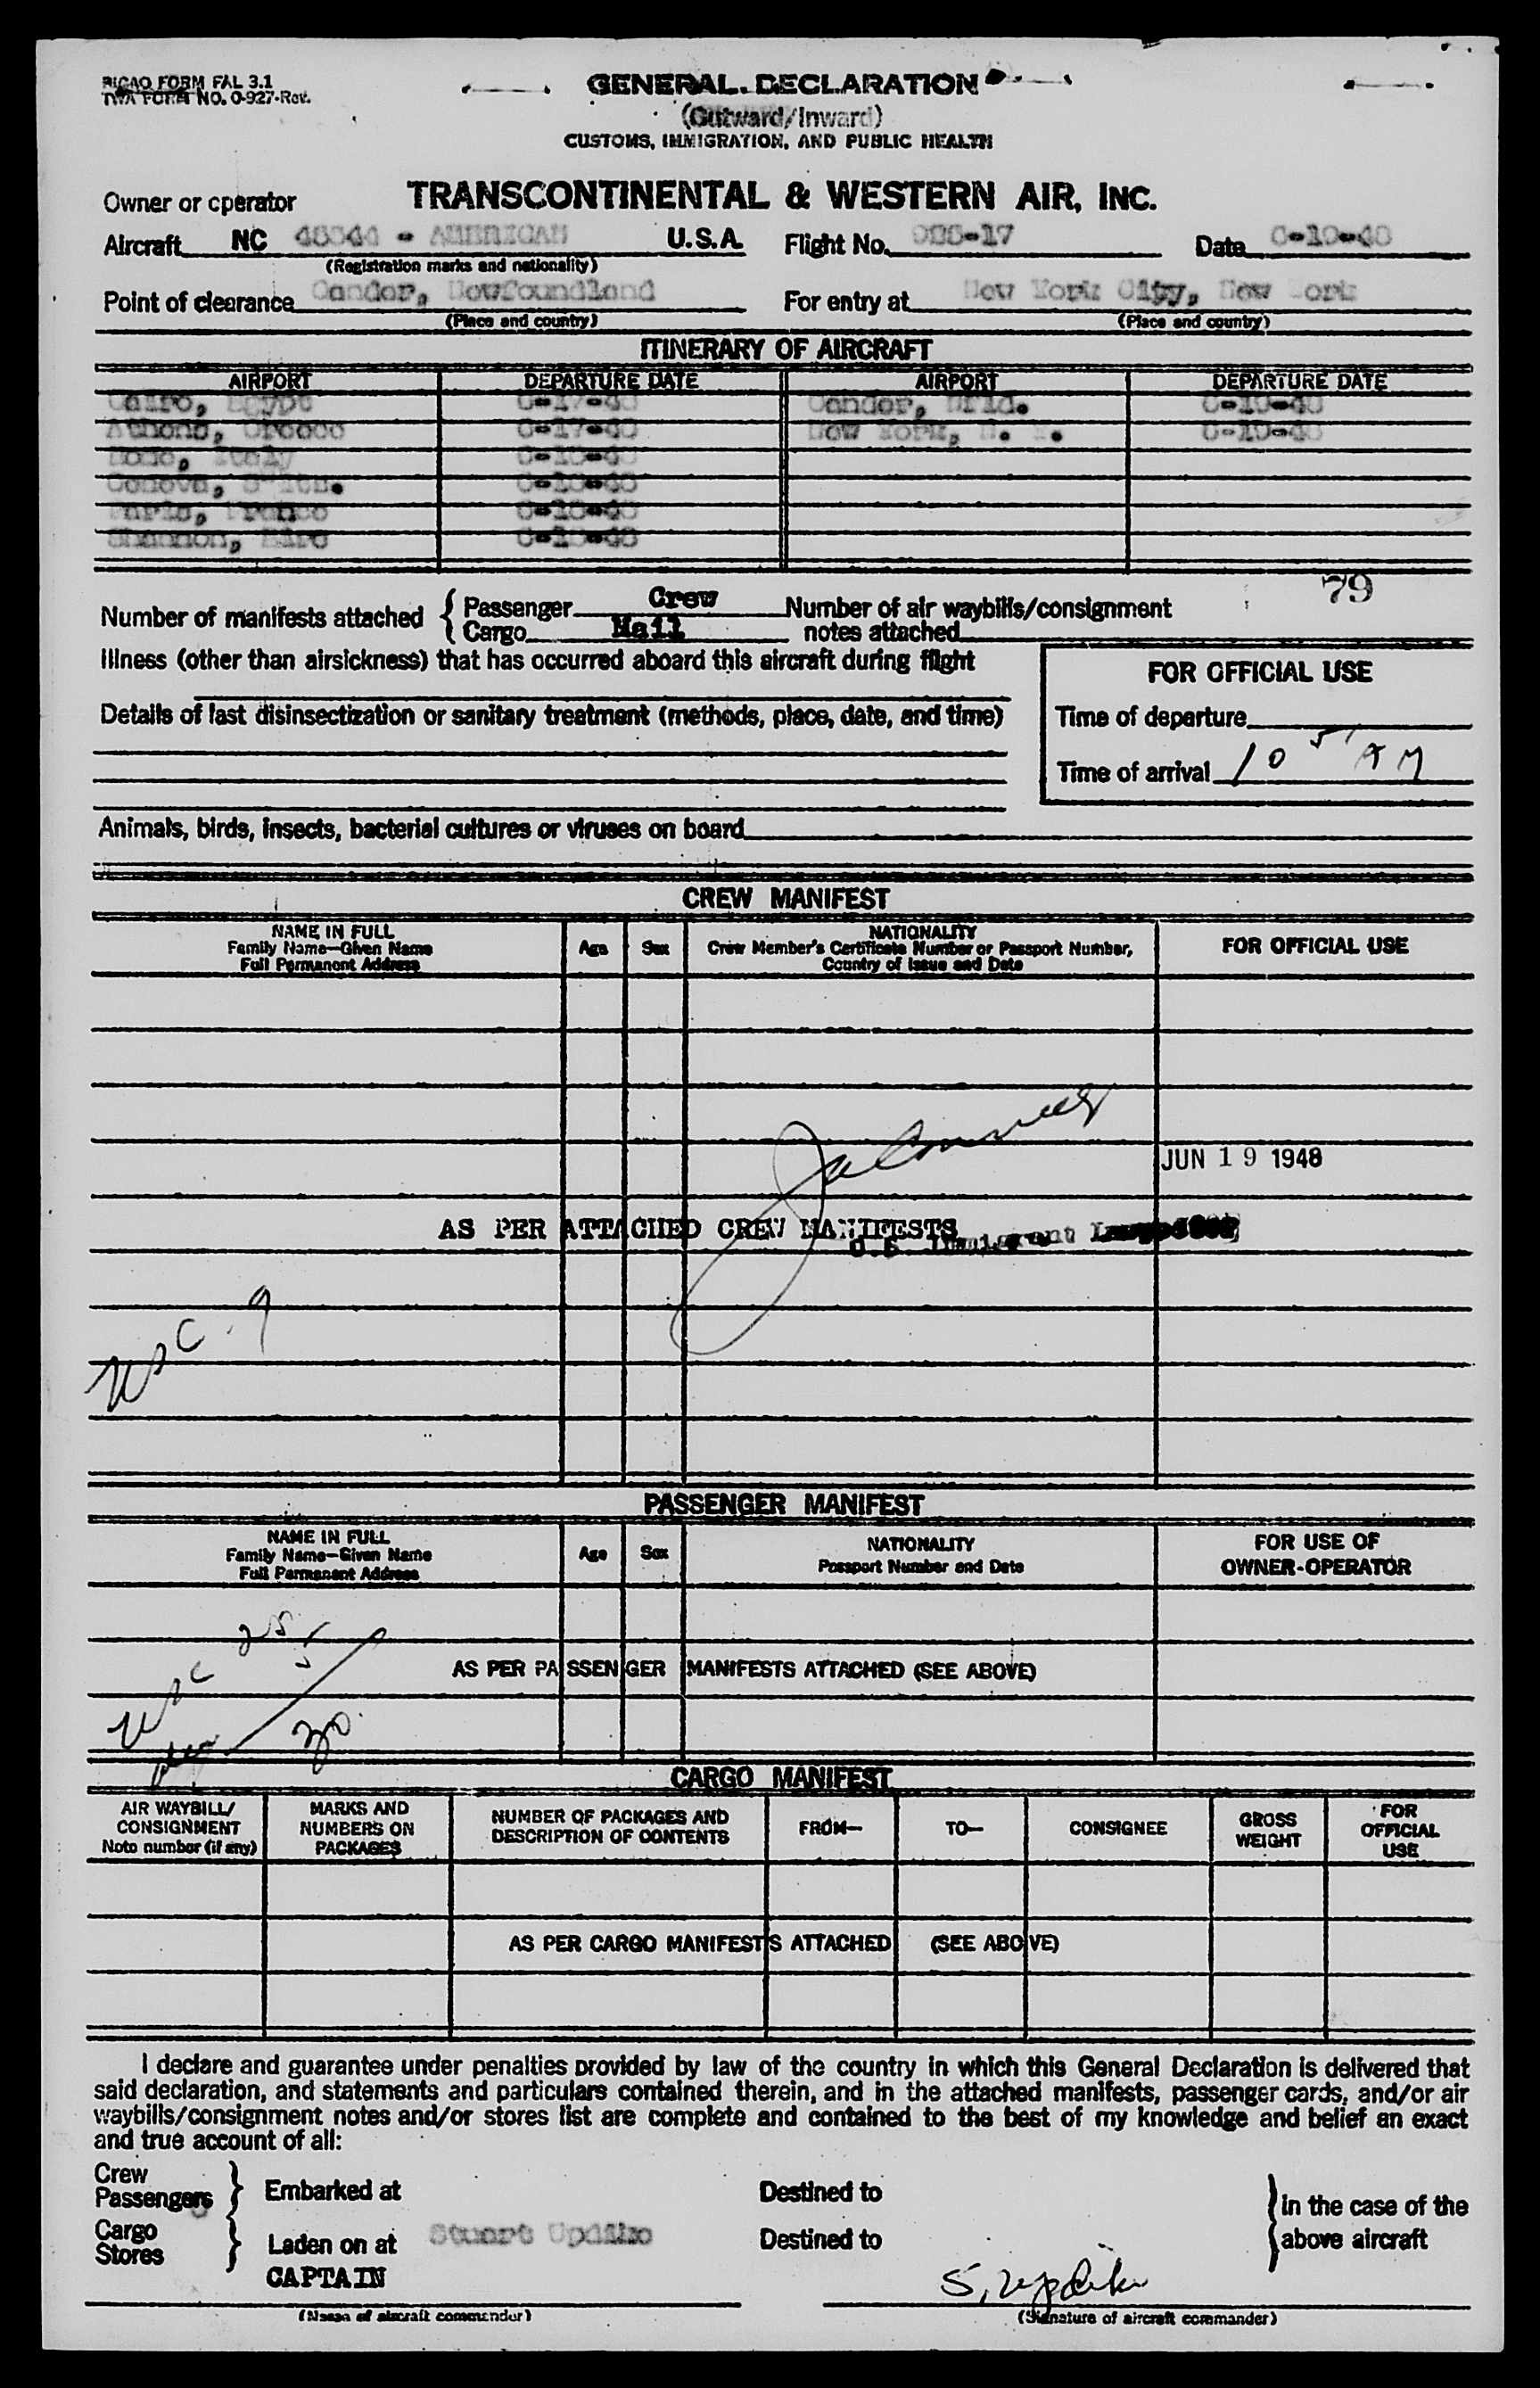 PICAO FORM FAL 3.1
TWA FORM NO. O-927-Rev.
GENERAL DECLARATION
(Outward/Inward)
CUSTOMS, IMMIGRATION, AND PUBLIC HEALTH
Owner or operator TRANSCONTINENTAL & WESTERN AIR, INC.
Aircraft NC - AMERICAN U.S.A. Flight No. -17 Date 6-19-48
(Registration marks and nationality)
Point of clearance Gander, Newfoundland For entry at New York City, New York
(Place and country) (Place and country)
ITINERARY OF AIRCRAFT
AIRPORT DEPARTURE DATE AIRPORT DEPARTURE DATE
Cairo, Egypt 6-17-48 Gander, Nfld. 6-19-48
Athens, Greece 6-17-48 New York, N. Y. 6-19-48
Rome, Italy 6-18-48
Geneva, Switz. 6-18-48
Paris, France 6-18-48
Shannon, Eire 6-18-48
79
Number of manifests attached { Passenger Crew Number of air waybills/consignment
Cargo Mail notes attached
Illness (other than airsickness) that has occurred aboard this aircraft during flight
FOR OFFICIAL USE
Details of last disinsectization or sanitary treatment (methods, place, date, and time)
Time of departure
Time of arrival 10 51 AM
Animals, birds, insects, bacterial cultures or viruses on board
CREW MANIFEST
NAME IN FULL
Family Name—Given Name
Full Permanent Address
Age Sex
NATIONALITY
Crew Member's Certificate Number or Passport Number,
Country of Issue and Date
FOR OFFICIAL USE
JUN 19 1948
AS PER ATTACHED CREW MANIFESTS
U.S. Immigrant
USC. 9
PASSENGER MANIFEST
NAME IN FULL
Family Name—Given Name
Full Permanent Address
Age Sex
NATIONALITY
Passport Number and Date
FOR USE OF
OWNER-OPERATOR
USC 25
5
AS PER PASSENGER MANIFESTS ATTACHED (SEE ABOVE)
30
CARGO MANIFEST
AIR WAYBILL/
CONSIGNMENT
Note number (if any)
MARKS AND
NUMBERS ON
PACKAGES
NUMBER OF PACKAGES AND
DESCRIPTION OF CONTENTS
FROM—
TO—
CONSIGNEE
GROSS
WEIGHT
FOR
OFFICIAL
USE
AS PER CARGO MANIFESTS ATTACHED (SEE ABOVE)
I declare and guarantee under penalties provided by law of the country in which this General Declaration is delivered that
said declaration, and statements and particulars contained therein, and in the attached manifests, passenger cards, and/or air
waybills/consignment notes and/or stores list are complete and contained to the best of my knowledge and belief an exact
and true account of all:
Crew
Passengers } Embarked at Destined to
Cargo
Stores } Laden on at Stuart Updike Destined to
in the case of the
above aircraft
CAPTAIN
S. Updike
(Name of aircraft commander) (Signature of aircraft commander)